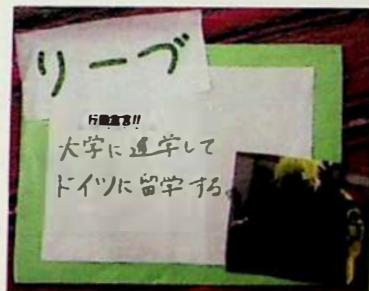 リーブ
行動宣言!!
大学に進学して
ドイツに留学する。